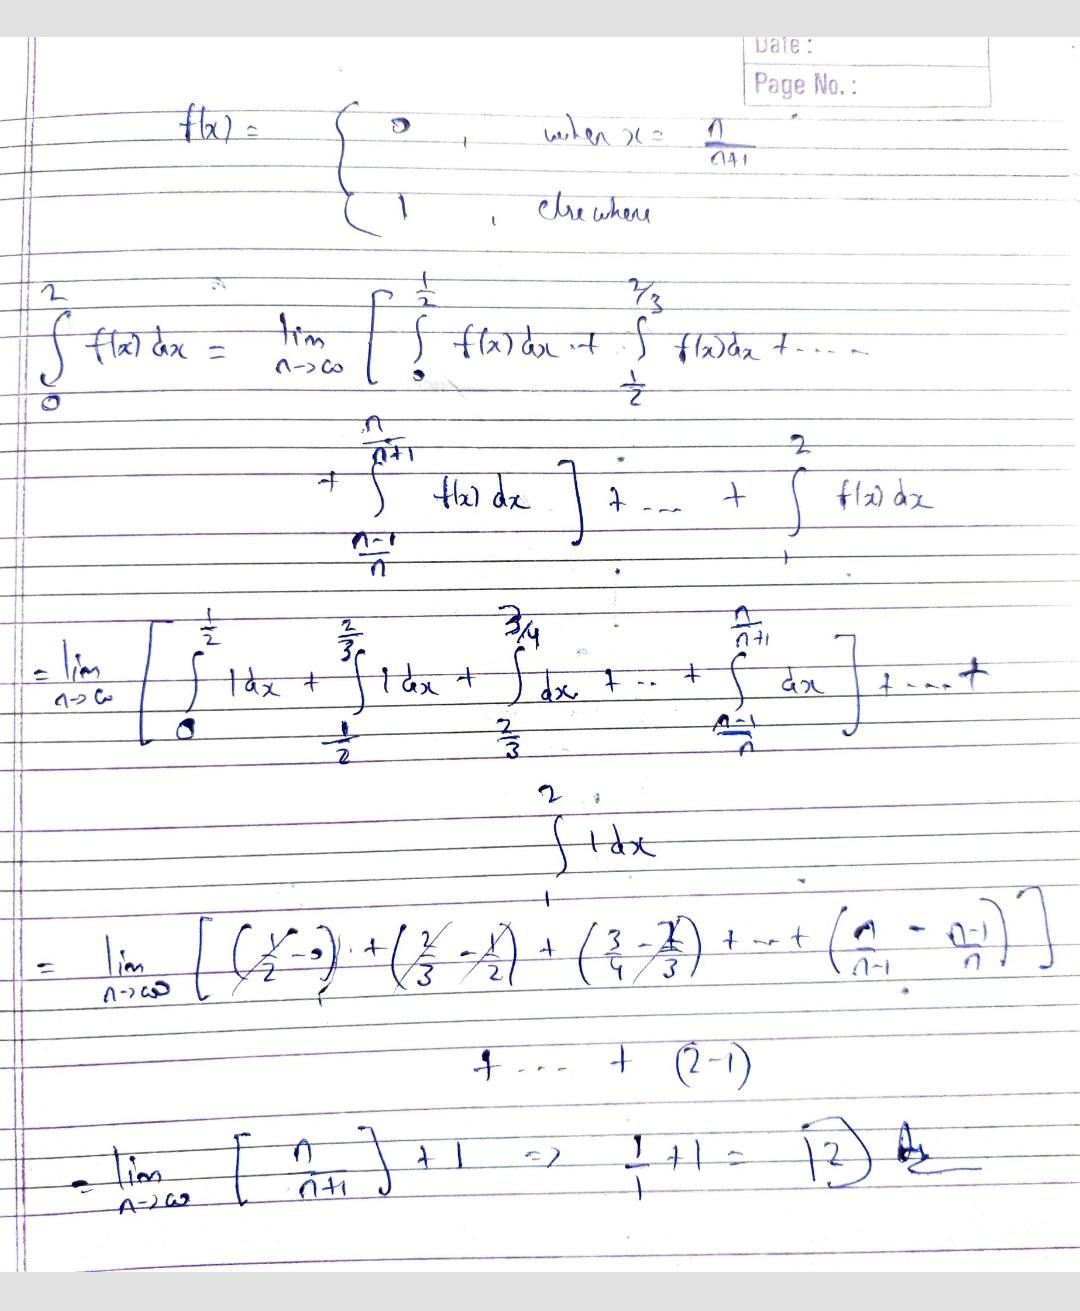 Date :
Page No. :
f(x) = { 0 , when x = n/(n+1)
1 , elsewhere
∫_0^2 f(x) dx = lim_{n→∞} [ ∫_0^{1/2} f(x) dx + ∫_{1/2}^{2/3} f(x) dx + ....
+ ∫_{(n-1)/n}^{n/(n+1)} f(x) dx ] + ... + ∫_1^2 f(x) dx
= lim_{n→∞} [ ∫_0^{1/2} 1 dx + ∫_{1/2}^{2/3} 1 dx + ∫_{2/3}^{3/4} dx + .. + ∫_{(n-1)/n}^{n/(n+1)} dx ] + .... +
∫_1^2 1 dx
= lim_{n→∞} [ (1/2 - 0) + (2/3 - 1/2) + (3/4 - 2/3) + ... + (n/(n-1) - (n-1)/n) ]
+ ... + (2-1)
= lim_{n→∞} [ n/(n+1) ] + 1 => 1/1 + 1 = 2